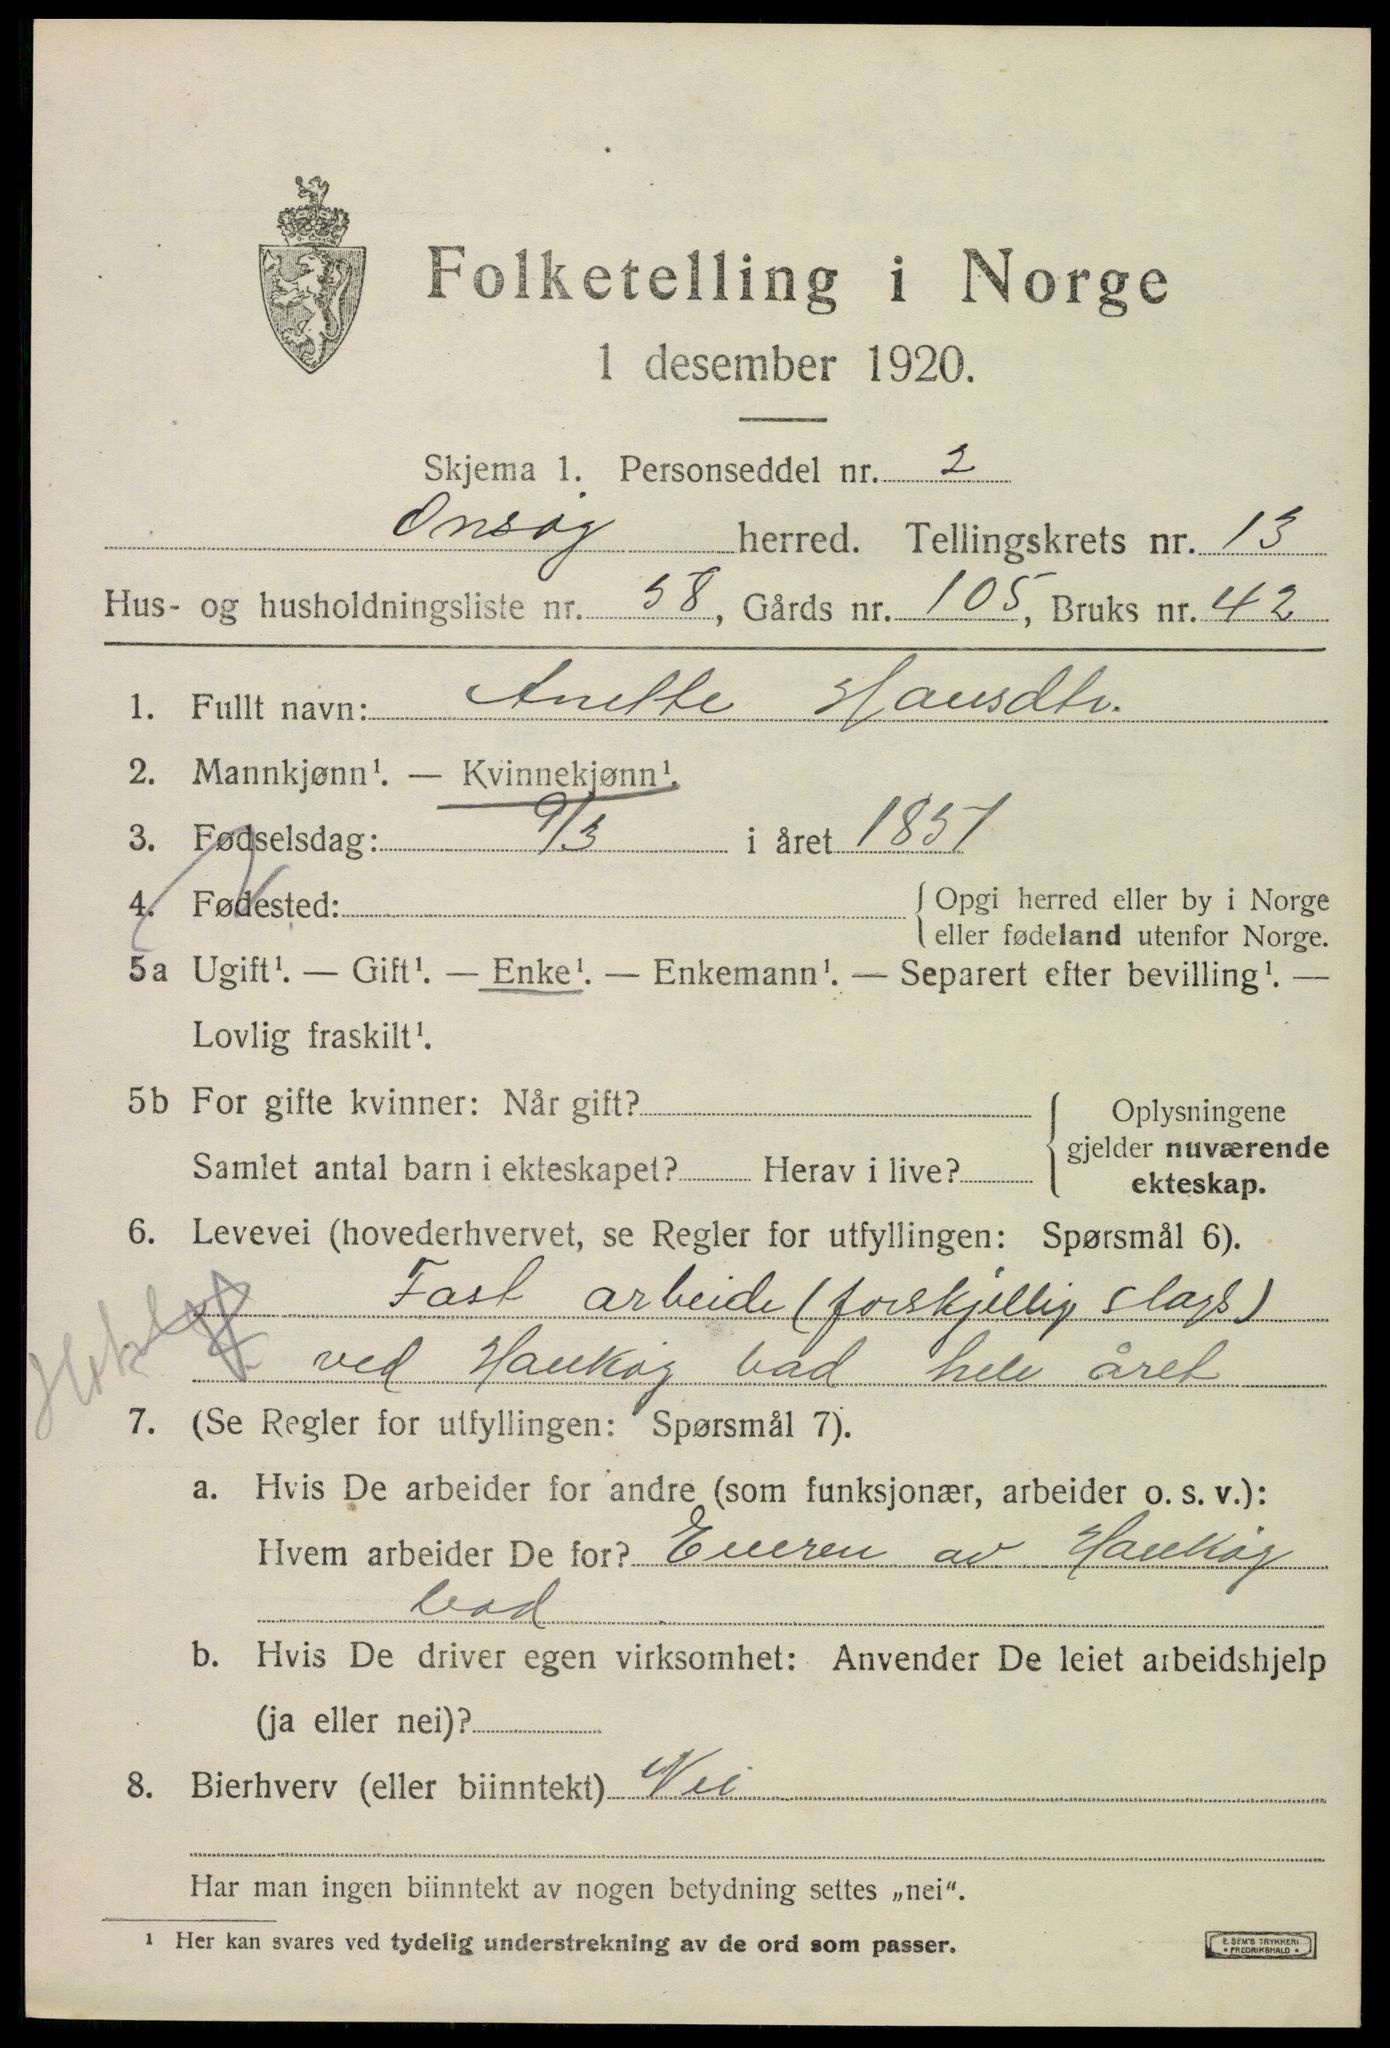 Folketelling i Norge
1 desember 1920.
Skjema 1. Personseddel nr. 2
Onsøy herred. Tellingskrets nr. 13
Hus- og husholdningsliste nr. 58, Gårds nr. 105, Bruks nr. 42
1. Fullt navn: Anette Hansdtr.
2. Mannkjønn¹. — Kvinnekjønn¹.
3. Fødselsdag: 9/3 i året 1851
4. Fødested: { Opgi herred eller by i Norge
eller fødeland utenfor Norge.
5a Ugift¹. — Gift¹. — Enke¹. — Enkemann¹. — Separert efter bevilling¹. —
Lovlig fraskilt¹.
5b For gifte kvinner: Når gift? { Oplysningene
gjelder nuværende
Samlet antal barn i ekteskapet? Herav i live?
ekteskap.
6. Levevei (hovederhvervet, se Regler for utfyllingen: Spørsmål 6).
Fast arbeide (forskjellig slags)
ved Hankøy bad hele året
7. (Se Regler for utfyllingen: Spørsmål 7).
a. Hvis De arbeider for andre (som funksjonær, arbeider o. s. v.):
Hvem arbeider De for? Eieren av Hankøy
bad
b. Hvis De driver egen virksomhet: Anvender De leiet arbeidshjelp
(ja eller nei)?
8. Bierhverv (eller biinntekt) Nei
Har man ingen biinntekt av nogen betydning settes „nei“.
¹ Her kan svares ved tydelig understrekning av de ord som passer.
E. SEM'S TRYKKERI
FREDRIKSHALD